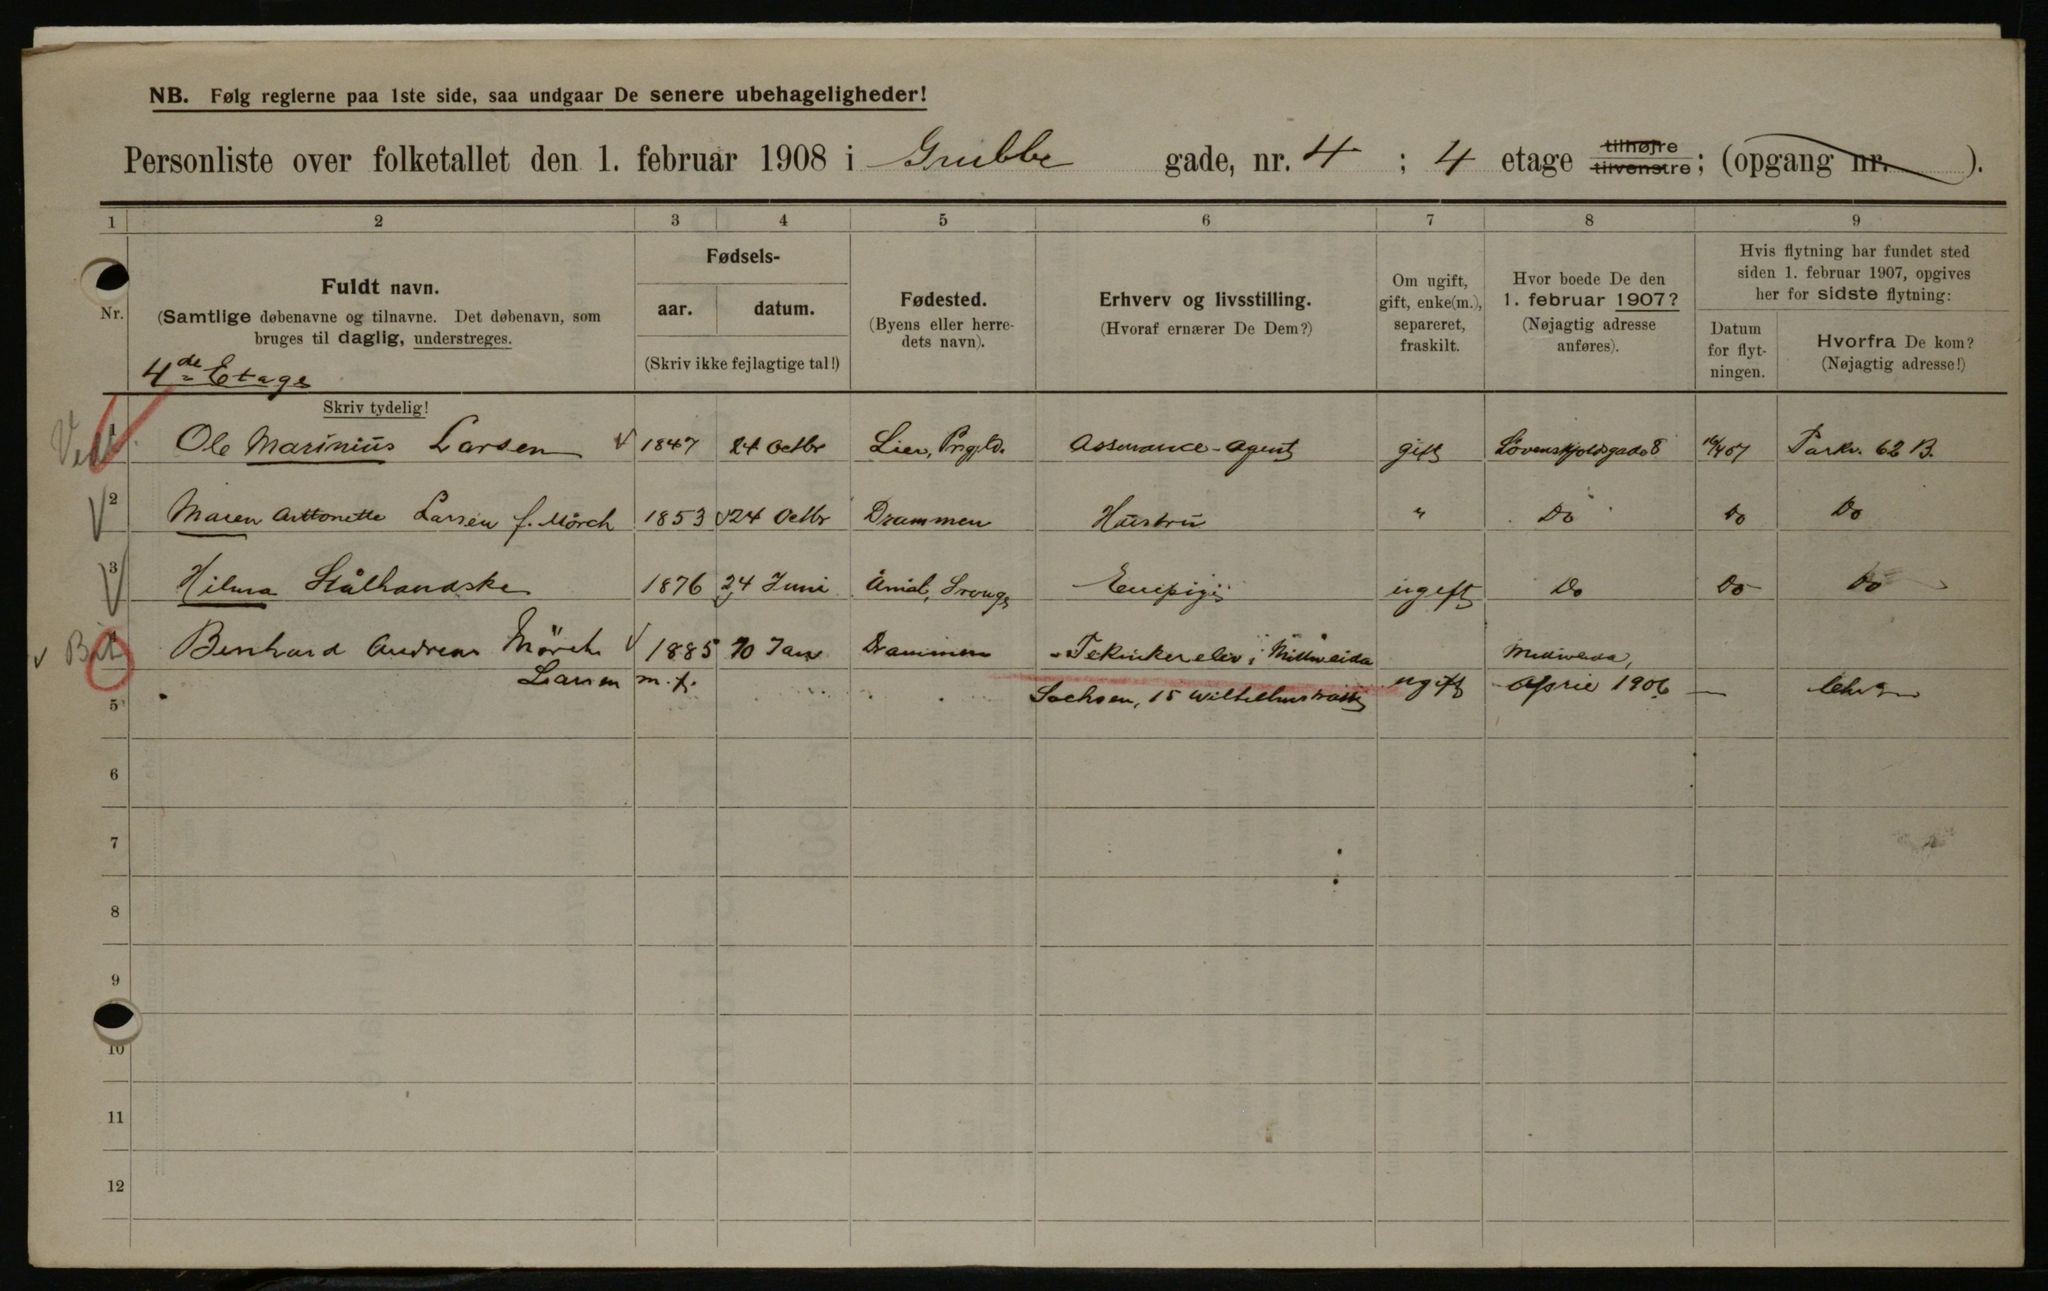 NB. Følg reglerne paa 1ste side, saa undgaar De senere ubehageligheder!
Personliste over folketallet den 1. februar 1908 i Grubbe gade, nr. 4 ; 4 etage tilhøjre tilvenstre ; (opgang nr. ).
1 2 3 4 5 6 7 8 9
Nr.
Fuldt navn.
(Samtlige døbenavne og tilnavne. Det døbenavn, som
bruges til daglig, understreges.
Fødsels-
aar. datum.
(Skriv ikke fejlagtige tal!)
Fødested.
(Byens eller herre-
dets navn).
Erhverv og livsstilling.
(Hvoraf ernærer De Dem?)
Om ugift,
gift, enke(m.),
separeret,
fraskilt.
Hvor boede De den
1. februar 1907?
(Nøjagtig adresse
anføres).
Hvis flytning har fundet sted
siden 1. februar 1907, opgives
her for sidste flytning:
Datum
for flyt-
ningen.
Hvorfra De kom?
(Nøjagtig adresse!)
4de Etage
Skriv tydelig!
1 Ole Marinius Larsen 1847 24 Octbr Lier, Prgjld. Assurance-Agent gift Løvenskjoldsgade 8 Parkv. 62 B.
2 Maren Anttonette Larsen f. Mörch 1853 24 Octbr Drammen Hustru " Do Do Do
3 Hilma Stålhandske 1876 24 Juni Åmål, ugift Do Do Do
4 Bernhard Andreas Mörch 1885 10 Jan Drammen Tekinker elev i Mittweida
Larsen m.k. Sachsen, 15 ugift April 1906 —
5
6
7
8
9
10
11
12